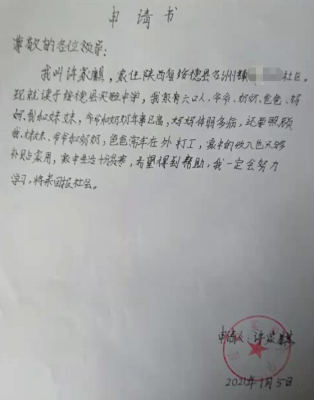 申请书
尊敬的各位领导:
我叫许家麒,家住陕西省绥德县名州镇 社区。
现就读于绥德县实验中学,我家有六口人,爷爷、奶奶、爸爸、妈
妈、我和妹妹,爷爷和奶奶年事已高,妈妈体弱多病,还要照顾
我、妹妹、爷爷和奶奶,爸爸常年在外打工,家中的收入也只够
补贴家用,家中生活十分贫寒,希望得到帮助,我一定会努力
学习,将来回报社会。
申请人:许家
2021年1月5日